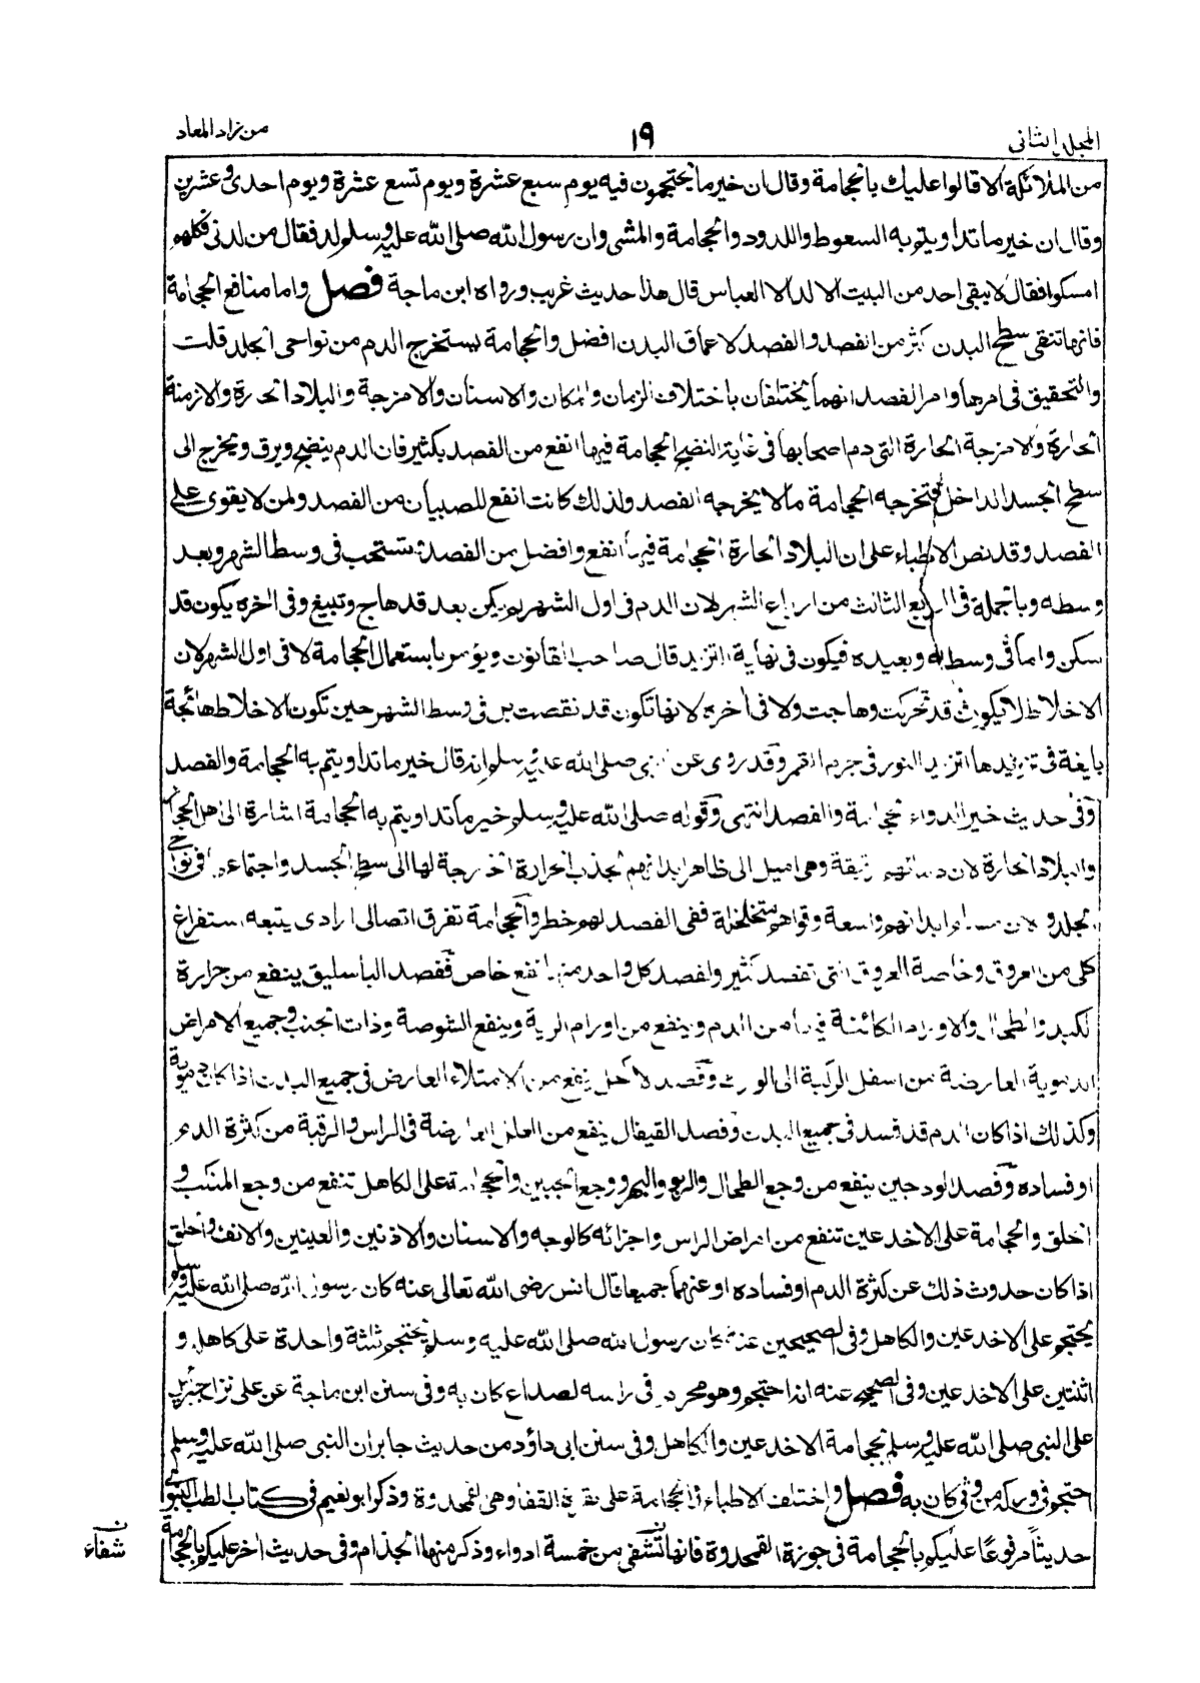 المجلد الثاني
١٩
من زاد المعاد
من الملائكة الا قالوا عليك بالحجامة وقال ان خير ما يحتجمون فيه يوم سبع عشرة ويوم تسع عشرة ويوم احدى وعشرين
وقال ان خير ما تداويتم به السعوط واللدود والحجامة والمشى وان رسول الله صلى الله عليه وسلم لد فقال من لدنى فكلهم
امسكوا فقال لا يبقى احد من البيت الا لد الا العباس قال هذا حديث غريب ورواه ابن ماجة فصل واما منافع الحجامة
فانها تنقى سطح البدن اكثر من الفصد والفصد لاعماق البدن افضل والحجامة يستخرج الدم من نواحى الجلد قلت
والتحقيق فى امرها وامر الفصد انهما يختلفان باختلاف الزمان والمكان والاسنان والامزجة والبلاد الحارة والازمنة
الحارة والامزجة الحارة التى دم اصحابها فى غاية النضج الحجامة فيها انفع من الفصد بكثير فان الدم ينضج ويرق ويخرج الى
سطح الجسد الداخل فتخرجه الحجامة مالا يخرجه الفصد ولذلك كانت انفع للصبيان من الفصد ولمن لا يقوى على
الفصد وقد نص الاطباء على ان البلاد الحارة الحجامة فيها انفع وافضل من الفصد وتستحب فى وسط الشهر وبعد
وسطه وبالجملة فى الربع الثالث من ارباع الشهر لان الدم فى اول الشهر لم يكن بعد قد هاج وتبيغ وفى اخره يكون قد
سكن واما فى وسطه وبعيده فيكون فى نهاية التزيد قال صاحب القانون ويؤمر باستعمال الحجامة لا فى اول الشهر لان
الاخلاط لا تكون قد تحركت وهاجت ولا فى اخره لانها تكون قد نقصت بل فى وسط الشهر حين تكون الاخلاط هائجة
بالغة فى تزيدها لتزيد النور فى جرم القمر وقد روى عن النبى صلى الله عليه وسلم انه قال خير ما تداويتم به الحجامة والفصد
وفى حديث خير الدواء الحجامة والفصد انتهى وقوله صلى الله عليه وسلم خير ما تداويتم به الحجامة اشارة الى اهل الحجاز
والبلاد الحارة لان دماءهم رقيقة وهى اميل الى ظاهر ابدانهم لجذب الحرارة الخارجة لها الى سطح الجسد واجتماعها فى نواحى
الجلد ولان مسام ابدانهم واسعة وقواهم متخلخلة ففى الفصد لهم خطر والحجامة تفرق اتصالى ارادى يتبعه استفراغ
كلى من العروق وخاصة العروق التى تفصد كثيرا ولفصد كل واحد منها نفع خاص ففصد الباسليق ينفع من حرارة
الكبد والطحال والاورام الكائنة فيها من الدم وينفع من اورام الرية وينفع الشوصة وذات الجنب وجميع الامراض
الدموية العارضة من اسفل الركبة الى الورك وفصد الاكحل ينفع من الامتلاء العارض فى جميع البدن اذا كان دمويا
وكذلك اذا كان الدم قد فسد فى جميع البدن وفصد القيفال ينفع من العلل العارضة فى الراس والرقبة من كثرة الدم
او فساده وفصد الودجين ينفع من وجع الطحال والربو والبهر ووجع الجبين والحجامة على الكاهل تنفع من وجع المنكب و
الحلق والحجامة على الاخدعين تنفع من امراض الراس واجزائه كالوجه والاسنان والاذنين والعينين والانف والحلق
اذا كان حدوث ذلك عن كثرة الدم او فساده او عنهما جميعا قال انس رضى الله تعالى عنه كان رسول الله صلى الله عليه وسلم
يحتجم على الاخدعين والكاهل وفى الصحيحين عنه كان رسول الله صلى الله عليه وسلم يحتجم ثلثة واحدة على كاهله و
اثنتين على الاخدعين وفى الصحيح عنه انه احتجم وهو محرم فى راسه لصداع كان به وفى سنن ابن ماجة عن على نزل جبريل
على النبى صلى الله عليه وسلم بحجامة الاخدعين والكاهل وفى سنن ابى داؤد من حديث جابر ان النبى صلى الله عليه وسلم
احتجم فى وركه من وثى كان به فصل واختلف الاطباء فى الحجامة على نقرة القفا وهى القمحدوة وذكر ابو نعيم فى كتاب الطب النبوى
حديثا مرفوعا عليكم بالحجامة فى جوزة القمحدوة فانها تشفى من خمسة ادواء وذكر منها الجذام وفى حديث اخر عليكم بالحجامة
ن
شفاء